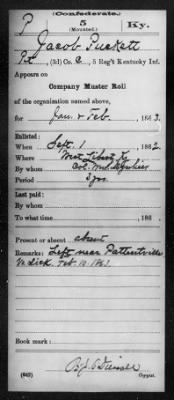 (Confederate.)
P 5 Ky.
(Mounted.)
Jacob Puckett
Pt, (2d) Co. C, 5 Reg't Kentucky Inf.
Appears on
Company Muster Roll
of the organization named above,
for Jan & Feb, 1863.
Enlisted:
When Sept. 1, 1862
Where West Liberty Ky
By whom Col.
Period 3 yrs
Last paid:
By whom
To what time , 186 .
Present or absent absent
Remarks: Left near
Va sick. Feb. 10, 1863
Book mark:
(642) Copyist.